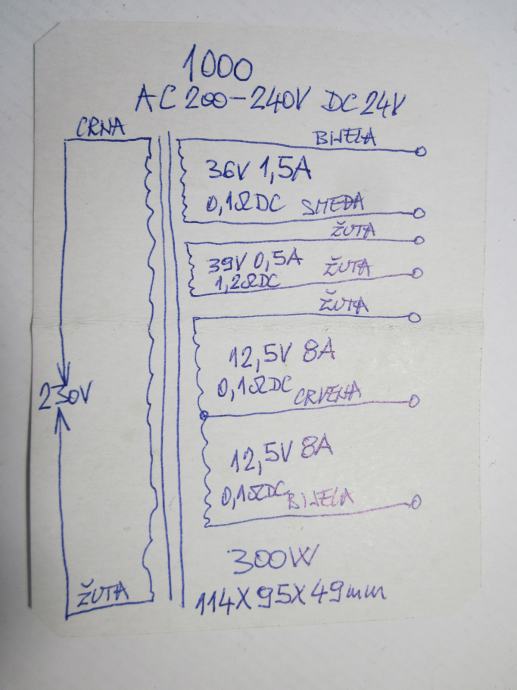 1000
AC 200-240V DC 24V
CRNA
BIJELA
36V 1,5A
0,1ΩDC SMEĐA
ŽUTA
39V 0,5A ŽUTA
1,2ΩDC
ŽUTA
12,5V 8A
0,1ΩDC CRVENA
230V
12,5V 8A
0,1ΩDC BIJELA
300W
ŽUTA
114X95X49mm